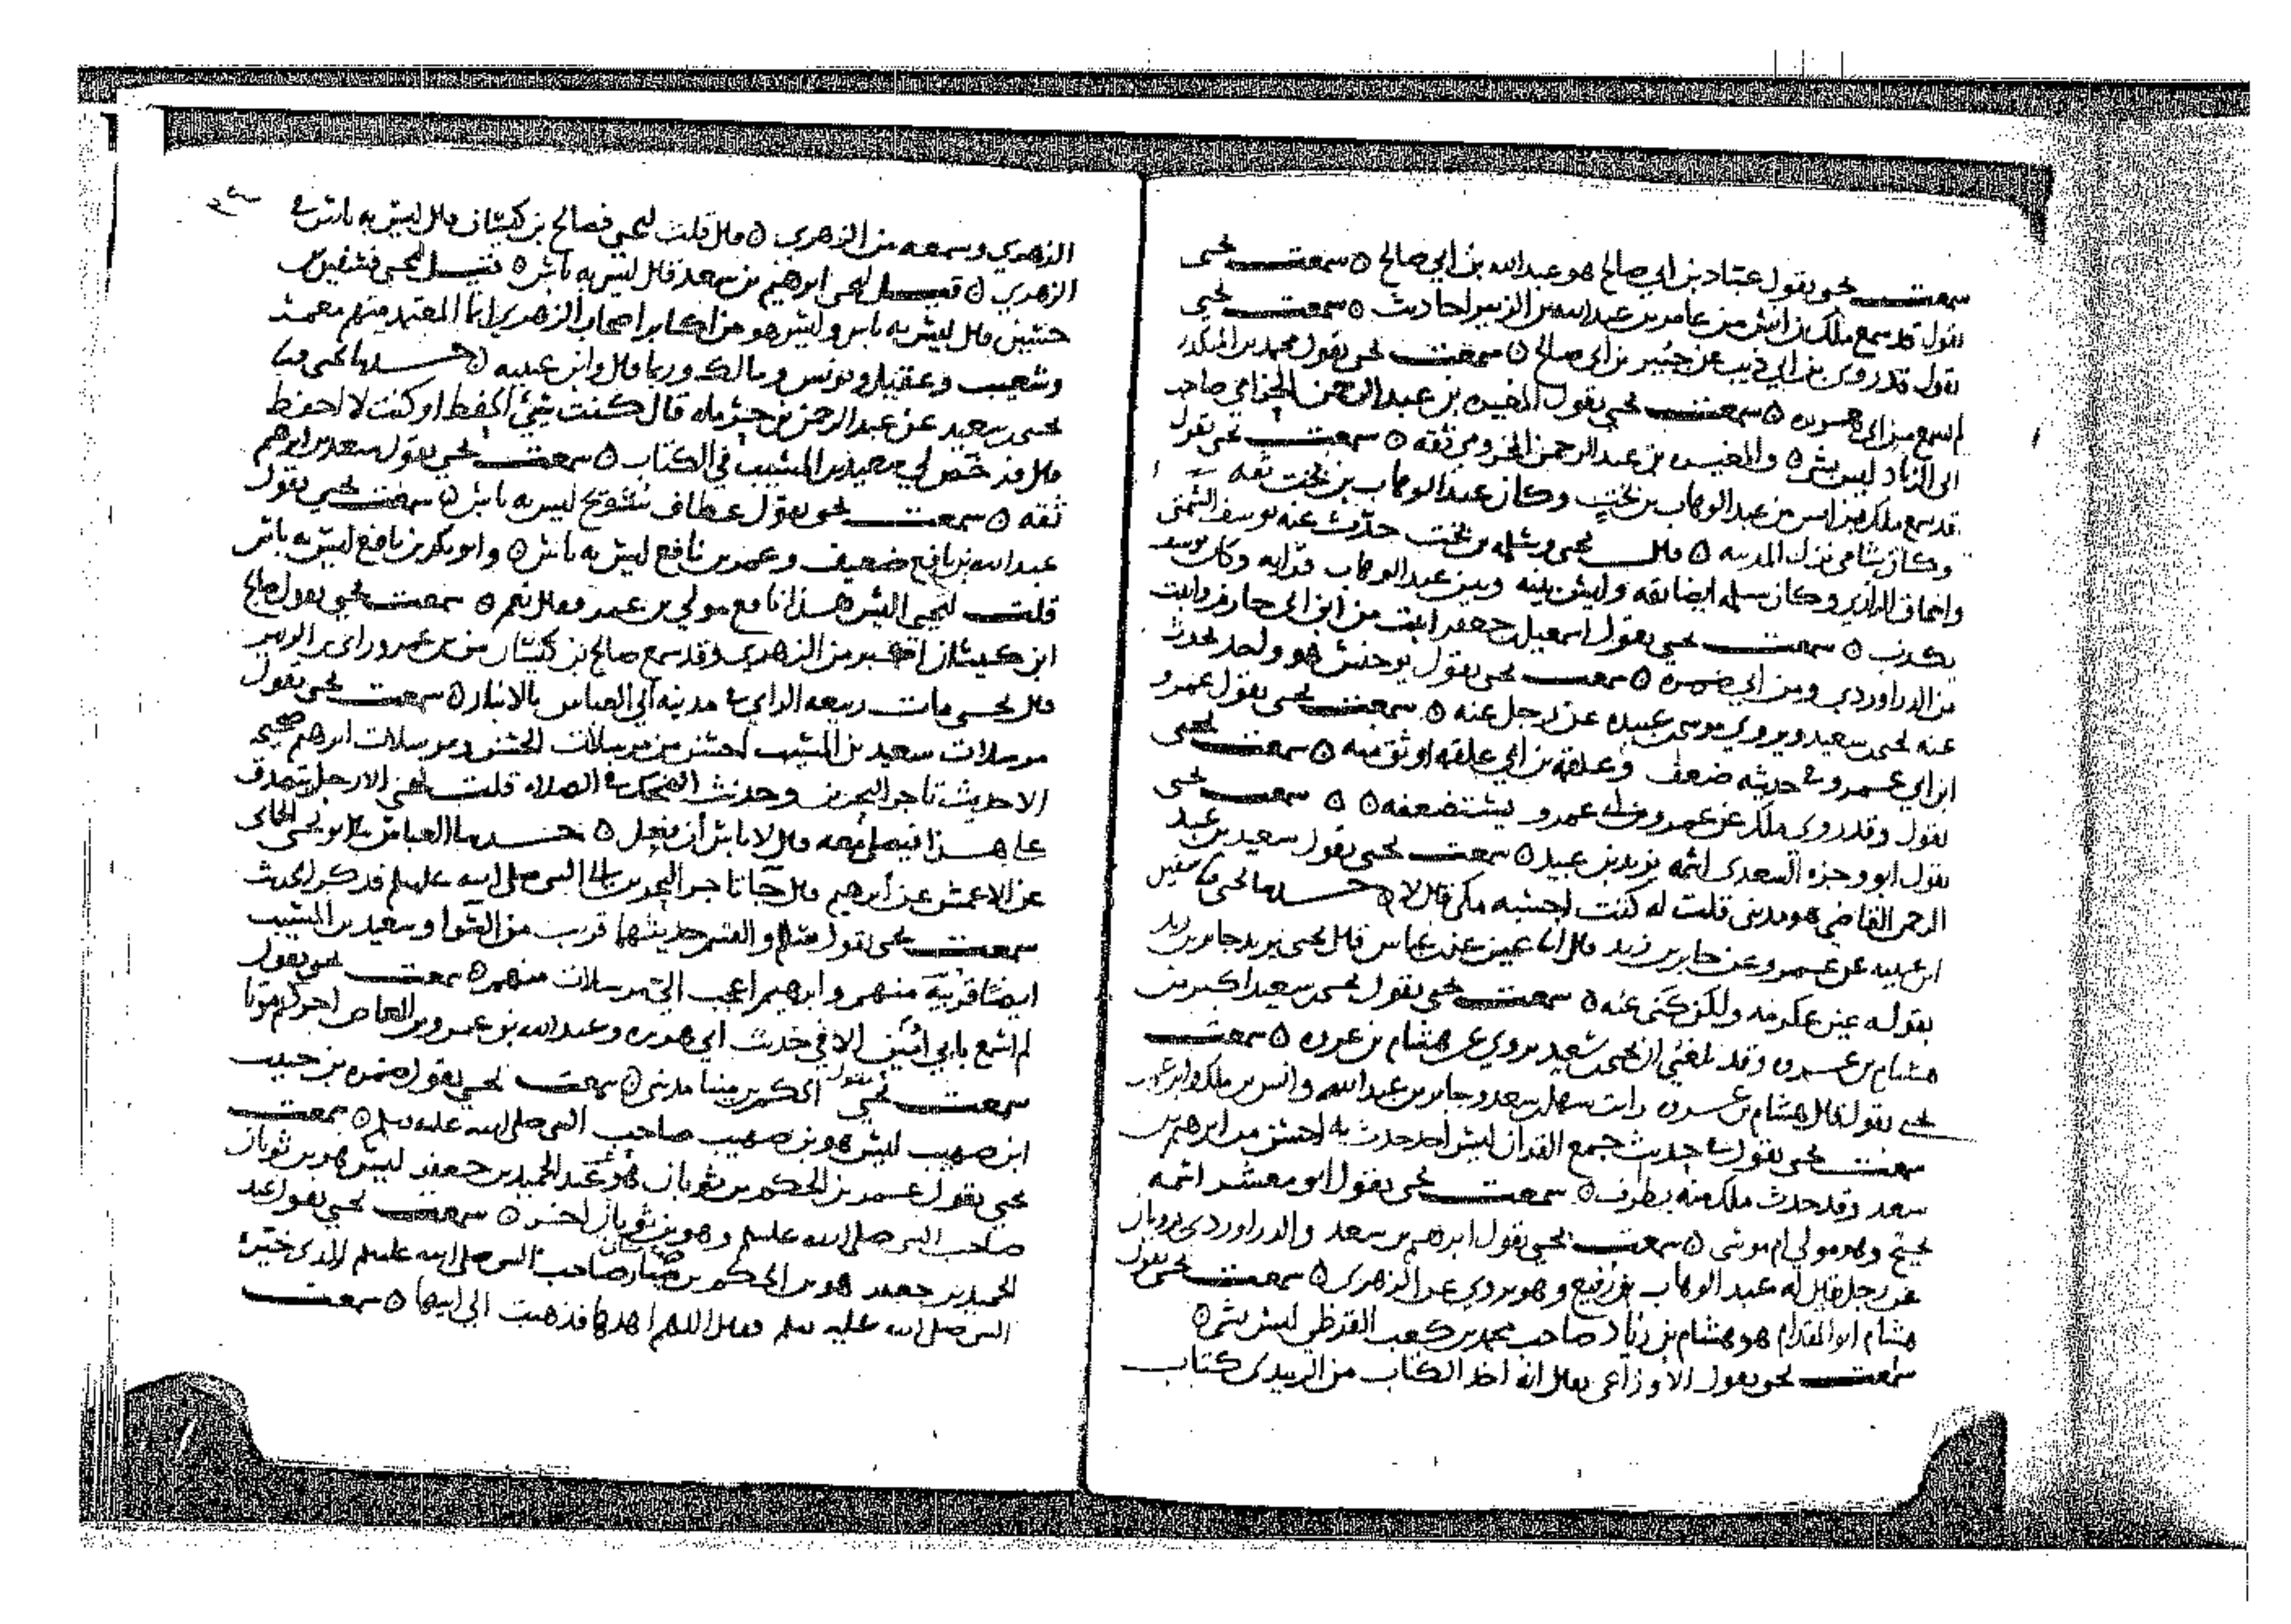 سمعت يحيى يقول عباد بن ابي صالح هو عبد الله بن ابي صالح ه سمعت يحيى
يقول قد سمع ملك بن انس من عامر بن عبد الله بن الزبير احاديث ه سمعت يحيى
يقول قد روى بن ابي ذيب عن جبير بن ابي صالح ه سمعت يحيى يقول محمد بن المنكدر
لم يسمع من ابي هريره ه سمعت يحيى يقول المغيره بن عبد الرحمن الحزامي صاحب
ابي الزناد ليس بشي ه والمغيره بن عبد الرحمن المخزومي ثقه ه سمعت يحيى يقول
قد سمع ملك بن انس من عبد الوهاب بن بخت وكان عبد الوهاب بن بخت ثقه
وكان شامي نزل المدينه ه قال يحيى وسلمه بن بخت حدث عنه يوسف السمتي
واسحاق الرازي وكان سلمه ايضا ثقه وليس بينه وبين عبد الوهاب قرابه وكان يوسف
يكذب ه سمعت يحيى يقول اسمعيل بن جعفر اثبت من ابن ابي حازم واثبت
من الدراوردي ومن ابي ضمره ه سمعت يحيى يقول يوحنس هو واحد يحدث
عنه يحيى بن سعيد ويروي موسى بن عبيده عن رجل عنه ه سمعت يحيى يقول عمرو
ابن ابي عمرو في حديثه ضعف وعلقمه بن ابي علقمه اوثق منه ه سمعت يحيى
يقول وقد روى ملك عن عمرو بن ابي عمرو يستضعفه ه ه سمعت يحيى
يقول ابو وجزه السعدي اسمه يزيد بن عبيد ه سمعت يحيى يقول سعيد بن عبد
الرحمن القاضي هو مديني قلت له كنت احسبه مكي قال لا ه حدثنا يحيى نا سفين
ابن عيينه عن عمرو عن جابر بن زيد قال انا عين عن عباس قال يحيى يريد جابر بن زيد
بقوله عين عكرمه ولكن كنى عنه ه سمعت يحيى يقول يحيى بن سعيد اكبر من
هشام بن عروه وقد بلغني ان يحيى بن سعيد يروي عن هشام بن عروه ه سمعت
يحيى يقول قال هشام بن عروه رايت سهل بن سعد وجابر بن عبد الله وانس بن ملك وابن عمر
سمعت يحيى يقول في حديث جمع القران ليس احد حدث به احسن من ابرهيم بن
سعد وقد حدث ملك منه بطرف ه سمعت يحيى يقول ابو معشر اسمه
نجيح وهو مولى ام موسى ه سمعت يحيى يقول ابرهيم بن سعد والدراوردي يرويان
عن رجل يقال له عبد الوهاب بن رفيع وهو يروي عن الزهري ه سمعت يحيى يقول
هشام ابو المقدام هو هشام بن زياد صاحب محمد بن كعب القرظي ليس بشي ه
سمعت يحيى يقول الاوزاعي يقال انه اخذ الكتاب من الزبيدي كتاب
الزهري وسمعه من الزهري ه قال قلت ليحيى فصالح بن كيسان قال ليس به باس في
الزهري ه قيل ليحيى ابرهيم بن سعد قال ليس به باس ه قيل ليحيى فسفين بن
حسين قال ليس به باس وليس هو من اكابر اصحاب الزهري انما المعتمد منهم معمر
وشعيب وعقيل ويونس ومالك وربما قال وابن عيينه ه حدثنا يحيى نا
يحيى بن سعيد عن عبد الرحمن بن حرمله قال كنت سيئ الحفظ او كنت لا احفظ
قال فرخص لي سعيد بن المسيب في الكتاب ه سمعت يحيى يقول سعد بن ابرهيم
ثقه ه سمعت يحيى يقول عطاف شويخ ليس به باس ه سمعت يحيى يقول
عبد الله بن نافع ضعيف وعمر بن نافع ليس به باس ه وابو بكر بن نافع ليس به باس
قلت ليحيى اليس هذا نافع مولى بن عمر فقال نعم ه سمعت يحيى يقول صالح
ابن كيسان اكبر من الزهري وقد سمع صالح بن كيسان من بن عمر وراى بن الزبير
قال يحيى مات ربيعه الراي في مدينه ابي العباس بالانبار ه سمعت يحيى يقول
مرسلات سعيد بن المسيب احسن من مرسلات الحسن ومرسلات ابرهيم صحيحه
الا حديث تاجر البحرين وحديث الضحك في الصلاه قلت يعني الا رجل يتصدق
على هذا فيصلي معه قال لا باس ان يفعل ه حدثنا العباس نا ابو يحيى الحماني
عن الاعمش عن ابرهيم قال جا تاجر البحرين الى النبي صلى الله عليه وسلم فذكر الحديث
سمعت يحيى يقول سالم والقسم حديثهما قريب من السوا وسعيد بن المسيب
ايضا قريب منهم وابرهيم اعجب الي مرسلات منهم ه سمعت يحيى يقول
لم اسمع بابي انس الا في حديث ابي هريره وعبد الله بن عمرو بن العاص احدهم موتا
سمعت يحيى يقول الحكم بن مينا مدني ه سمعت يحيى يقول ضمره بن حبيب
ابن صهيب ليس هو بن صهيب صاحب النبي صلى الله عليه وسلم ه سمعت
يحيى يقول عمر بن الحكم بن ثوبان هو عبد الحميد بن جعفر ليس هو بن ثوبان
صاحب النبي صلى الله عليه وسلم وهو بن ثوبان اخر ه سمعت يحيى يقول عبد
الحميد بن جعفر هو بن الحكم بن سنان صاحب النبي صلى الله عليه وسلم الذي خيره
النبي صلى الله عليه وسلم فقال اللهم اهدها فذهبت الى ابيها ه سمعت